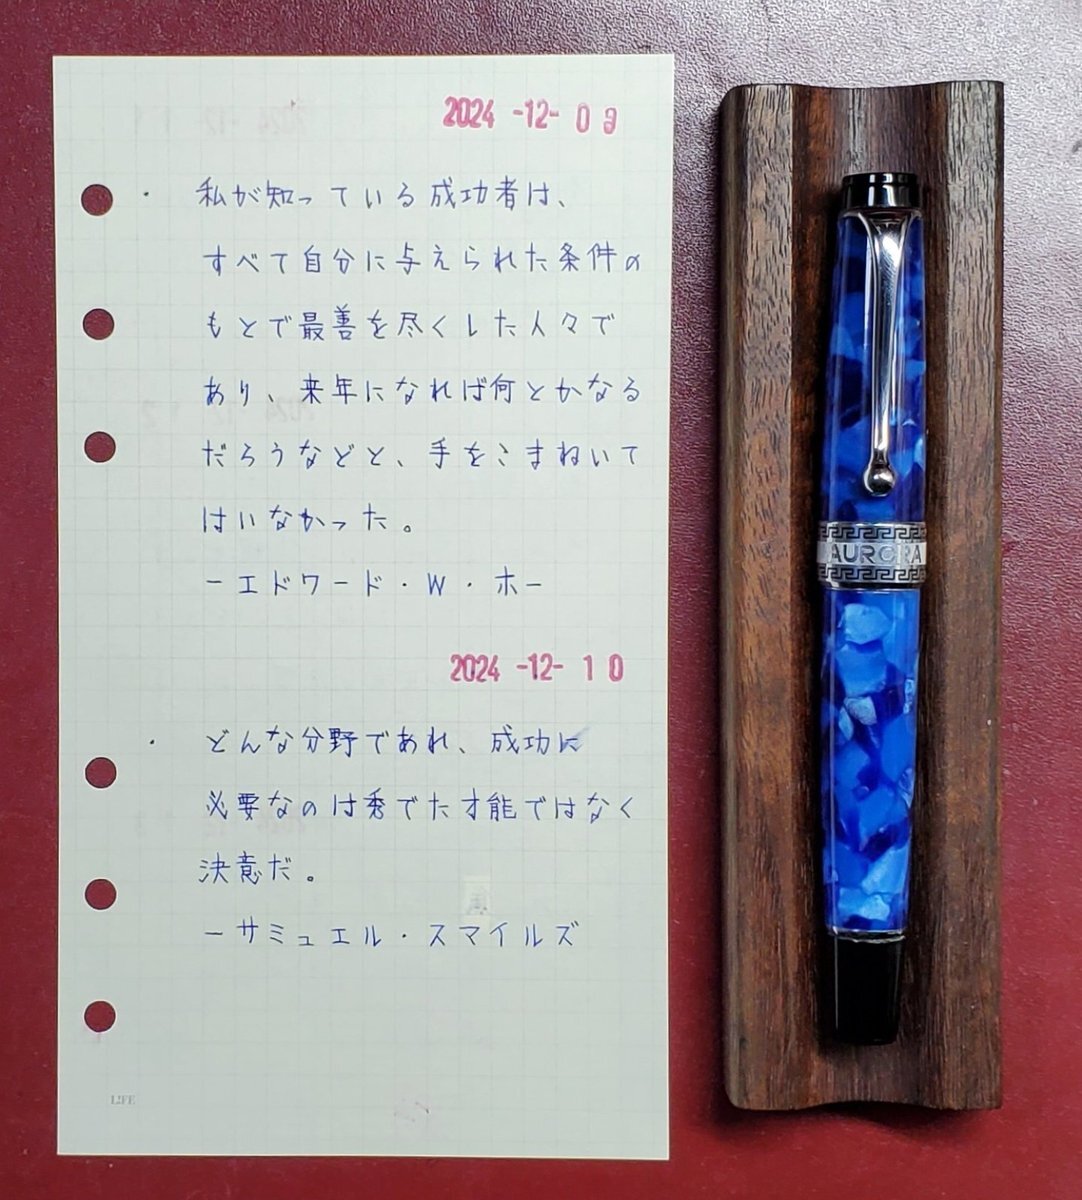 2024 -12- 09
・ 私が知っている成功者は、
すべて自分に与えられた条件の
もとで最善を尽くした人々で
あり、来年になれば何とかなる
だろうなどと、手をこまねいて
はいなかった。
ーエドワード・W・ホー
2024 -12- 10
・ どんな分野であれ、成功に
必要なのは秀でた才能ではなく
決意だ。
ーサミュエル・スマイルズ
L!FE
AURORA